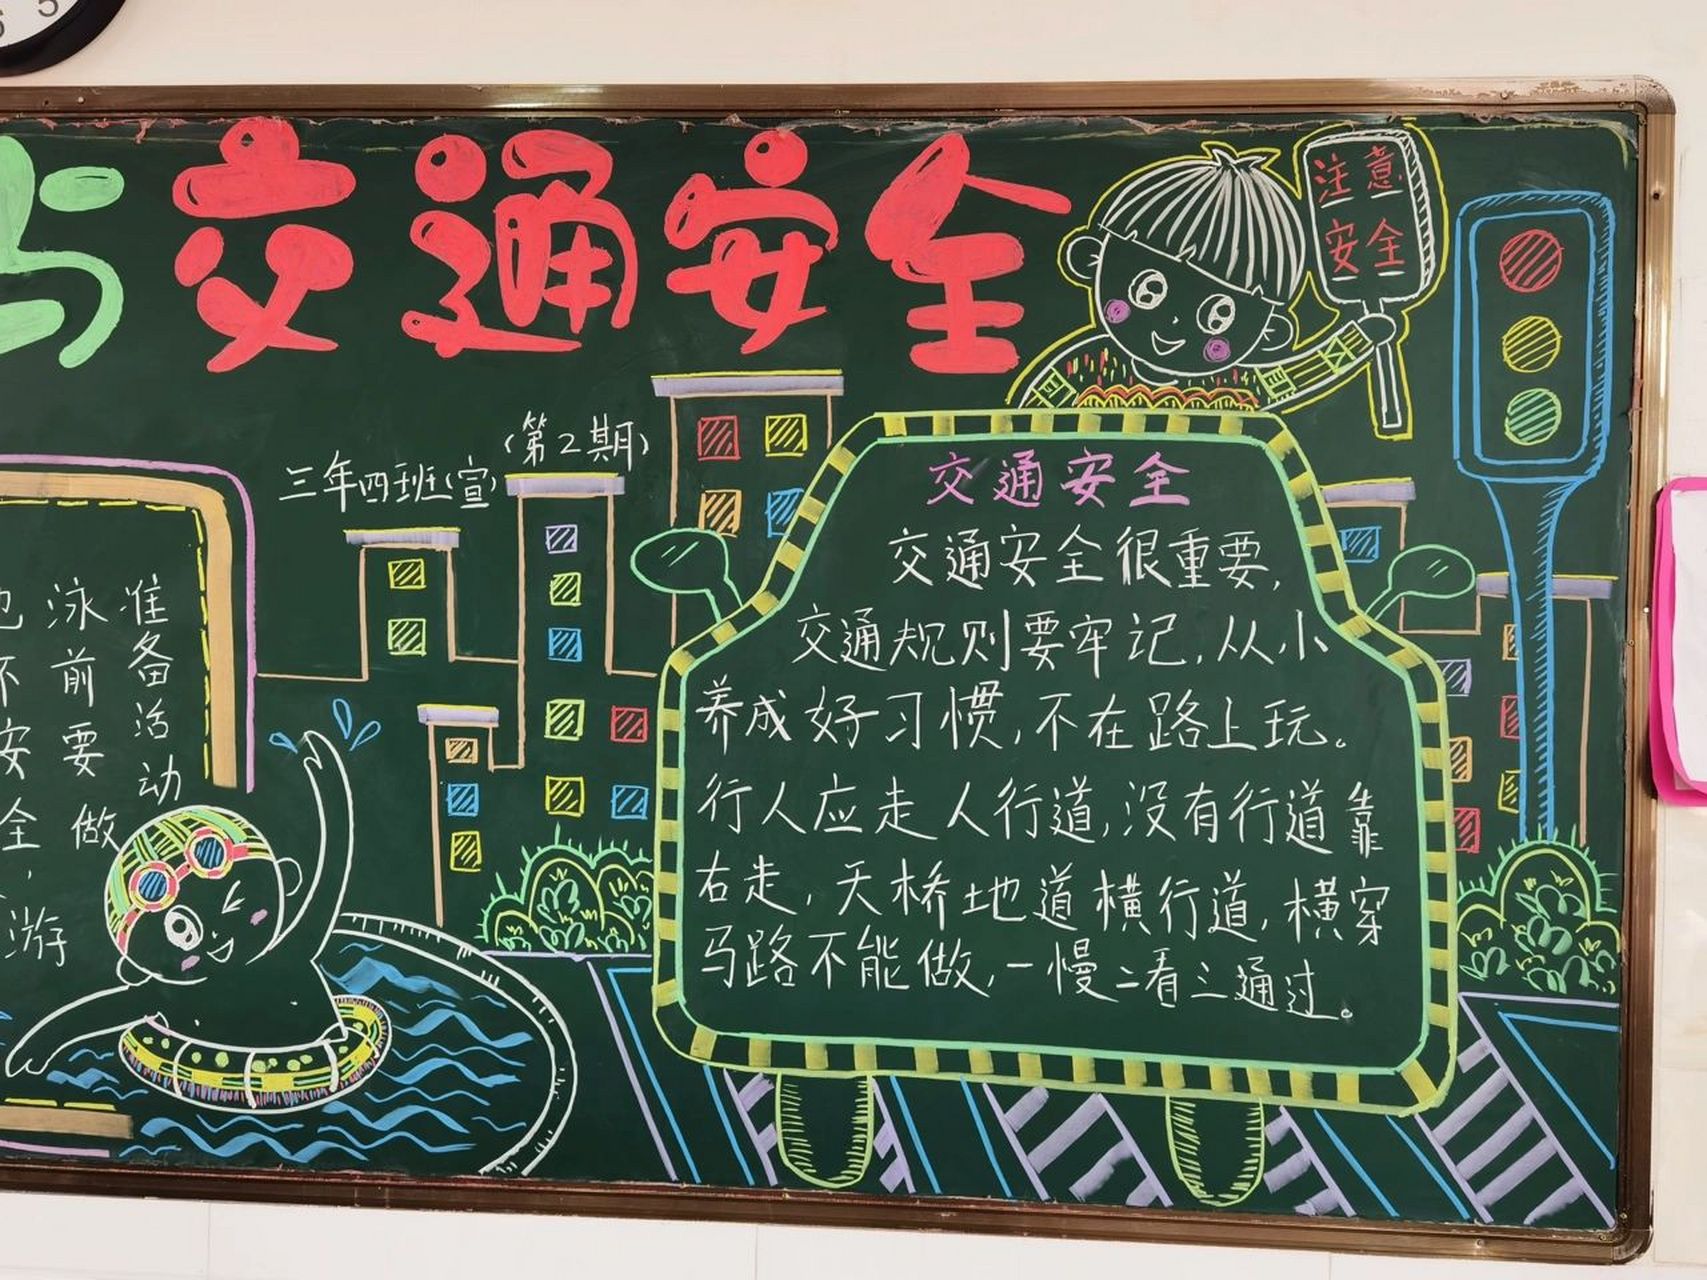 5
与交通安全
注意
安全
三年四班(宣)
(第2期)
不安全，游
泳前要做
准备活动
交通安全
交通安全很重要,
交通规则要牢记,从小
养成好习惯,不在路上玩。
行人应走人行道,没有行道靠
右走,天桥地道横行道,横穿
马路不能做,一慢二看三通过。